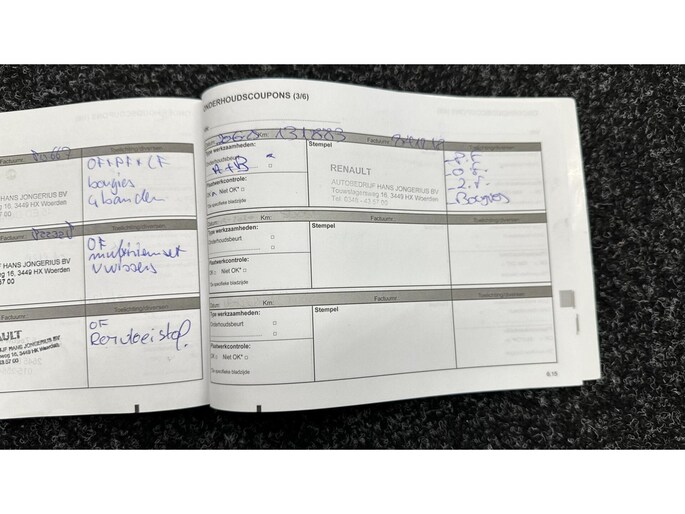 Factuurnr.
Toelichting/diversen
OF+PF+CF
bougies
4 banden
HANS JONGERIUS BV
16, 3449 HX Woerden
57 00
Factuurnr.
Toelichting/diversen
OF
multiriemset
V wissers
HANS JONGERIUS BV
weg 16, 3449 HX Woerden
57 00
Factuurnr.
Toelichting/diversen
OF
Remvloeistof
AULT
HANS JONGERIUS BV
16, 3449 HX Woerden
57 00
ONDERHOUDSCOUPONS (3/6)
Datum: Km: 131883 Factuurnr.
Toelichting/diversen
Type werkzaamheden:
Stempel
Onderhoudsbeurt
A+B
Plaatwerkcontrole:
OK Niet OK*
*Zie specifieke bladzijde
RENAULT
AUTOBEDRIJF HANS JONGERIUS BV
Touwslagersweg 16, 3449 HX Woerden
Tel. 0348 - 43 57 00
- P.F
- O.F.
- I.F.
- Bougies
Datum: Km: Factuurnr. Toelichting/diversen
Type werkzaamheden:
Stempel
Onderhoudsbeurt
Plaatwerkcontrole:
OK Niet OK*
*Zie specifieke bladzijde
Datum: Km: Factuurnr. Toelichting/diversen
Type werkzaamheden:
Stempel
Onderhoudsbeurt
Plaatwerkcontrole:
OK Niet OK*
*Zie specifieke bladzijde